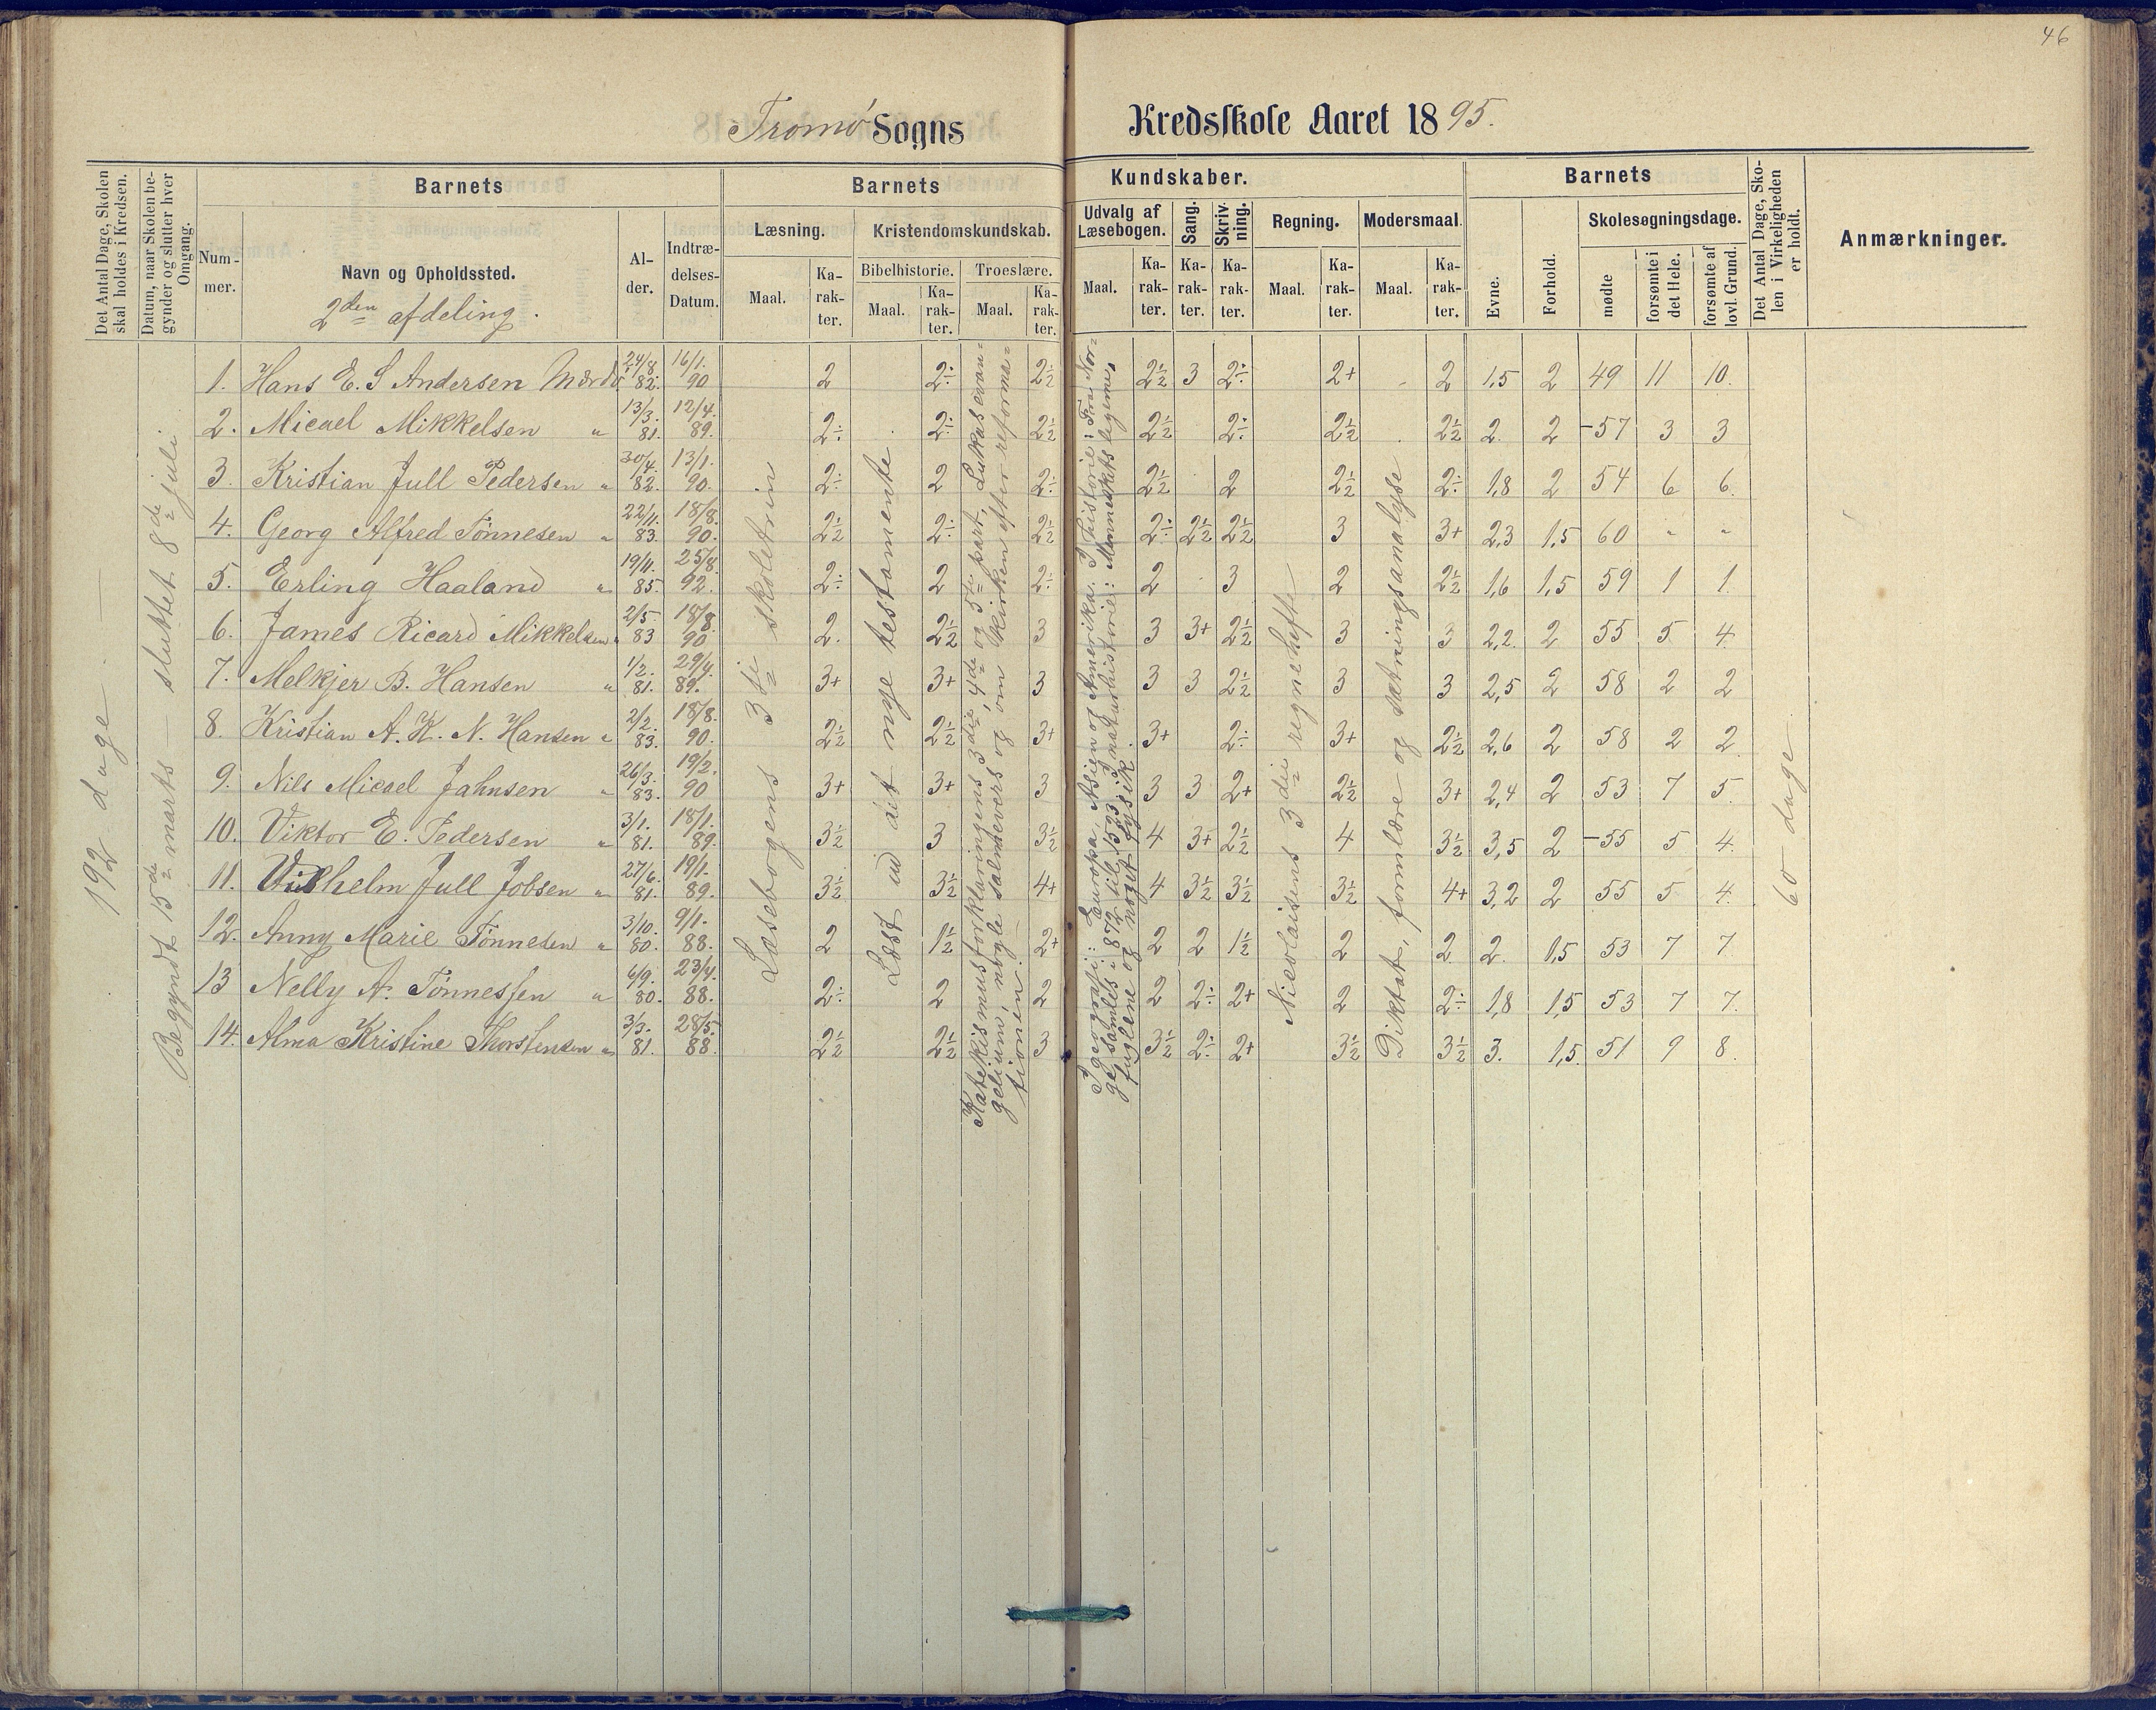 46
Tromø Sogns Kredsskole Aaret 1895.
Det Antal Dage, Skolen skal holdes i Kredsen.
Datum, naar Skolen begynder og slutter hver Omgang.
Barnets
Barnets
Kundskaber.
Barnets
Det Antal Dage, Skolen i Virkeligheden er holdt.
Anmærkninger.
Nummer.
Navn og Opholdssted.
2den afdeling.
Alder.
Indtrædelses-Datum.
Læsning.
Kristendomskundskab.
Udvalg af Læsebogen.
Sang.
Skrivning.
Regning.
Modersmaal.
Evne.
Forhold.
Skolesøgningsdage.
Bibelhistorie.
Troeslære.
Maal. Karakter. Maal. Karakter. Maal. Karakter. Maal. Karakter. Karakter. Karakter. Maal. Karakter. Maal. Karakter.
mødte
forsømte i det Hele.
forsømte af lovl. Grund.
192 dage
Begyndt 15de marts – sluttet 8de juli
Læsebogens 3die skoletrin
Læst ud det nye testamente
Katekismusforklaringens 3die, 4de og 5te part, Lukas evangelium, nogle salmevers og om kirken efter reformationen.
I geografi: Europa, Asien og Amerika. I historie: Fra Norge samles i 872 til 1593. I naturhistorie: Menneskets legeme, fuglene og noget fysik.
Nicolaisens 3die regnehefte
Diktat, formlære og sætningsanalyse
60 dage
1. Hans E. S Andersen Mærdø 24/8. 82. 16/1. 90 2 2÷ 2½ 2½ 3 2÷ 2+ 2 1,5 2 49 11 10.
2. Micael Mikkelsen " 13/3. 81. 12/4. 89. 2÷ 2÷ 2½ 2½ 2÷ 2½ 2½ 2. 2 57 3 3
3. Kristian Jull Pedersen " 30/4. 82. 13/1. 90. 2÷ 2 2÷ 2½ 2 2½ 2÷ 1,8 2 54 6 6.
4. Georg Alfred Tönnesen " 22/11. 83. 18/8. 90. 2½ 2÷ 2½ 2÷ 2½ 2½ 3 3+ 2,3 1,5 60 " "
5. Erling Haaland " 19/11. 85. 25/8. 92. 2÷ 2 2÷ 2 3 2 2½ 1,6 1,5 59 1 1.
6. James Ricard Mikkelsen " 2/5. 83 18/8. 90 2. 2½ 3 3 3+ 2½ 3 3 2,2. 2 55 5. 4.
7. Melkjer B. Hansen " 1/2. 81. 29/4. 89. 3+ 3+ 3 3 3 2½ 3 3 2,5 2 58 2 2
8. Kristian A. K. N. Hansen " 2/2. 83. 18/8. 90. 2½ 2½ 3+ 3+ 2÷ 3+ 2½ 2,6 2 58 2 2.
9. Nils Micael Jahnsen " 26/3. 83. 19/2. 90 3+ 3+ 3 3 3 2+ 2½ 3+ 2,4 2 53 7 5.
10. Viktor E. Pedersen " 3/1. 81. 18/1. 89. 3½ 3 3½ 4 3+ 2½ 4 3½ 3,5 2 55 5 4.
11. Vilhelm Jull Jobsen " 27/6. 81. 19/1. 89. 3½ 3½ 4+ 4 3½ 3½ 3½ 4+ 3,2 2 55 5 4.
12. Anny Marie Tönnesen " 3/10. 80. 9/1. 88. 2 1½ 2+ 2 2 1½ 2 2. 2. 1,5 53 7 7
13 Nelly A. Tönnessen " 6/9. 80. 23/4. 88. 2÷ 2 2 2 2÷ 2+ 2 2÷ 1,8 1,5 53 7 7.
14. Alma Kristine Thorstensen " 3/3. 81. 28/5. 88. 2½ 2½ 3 3½ 2÷ 2+ 3½ 3½ 3. 1,5. 51 9 8.